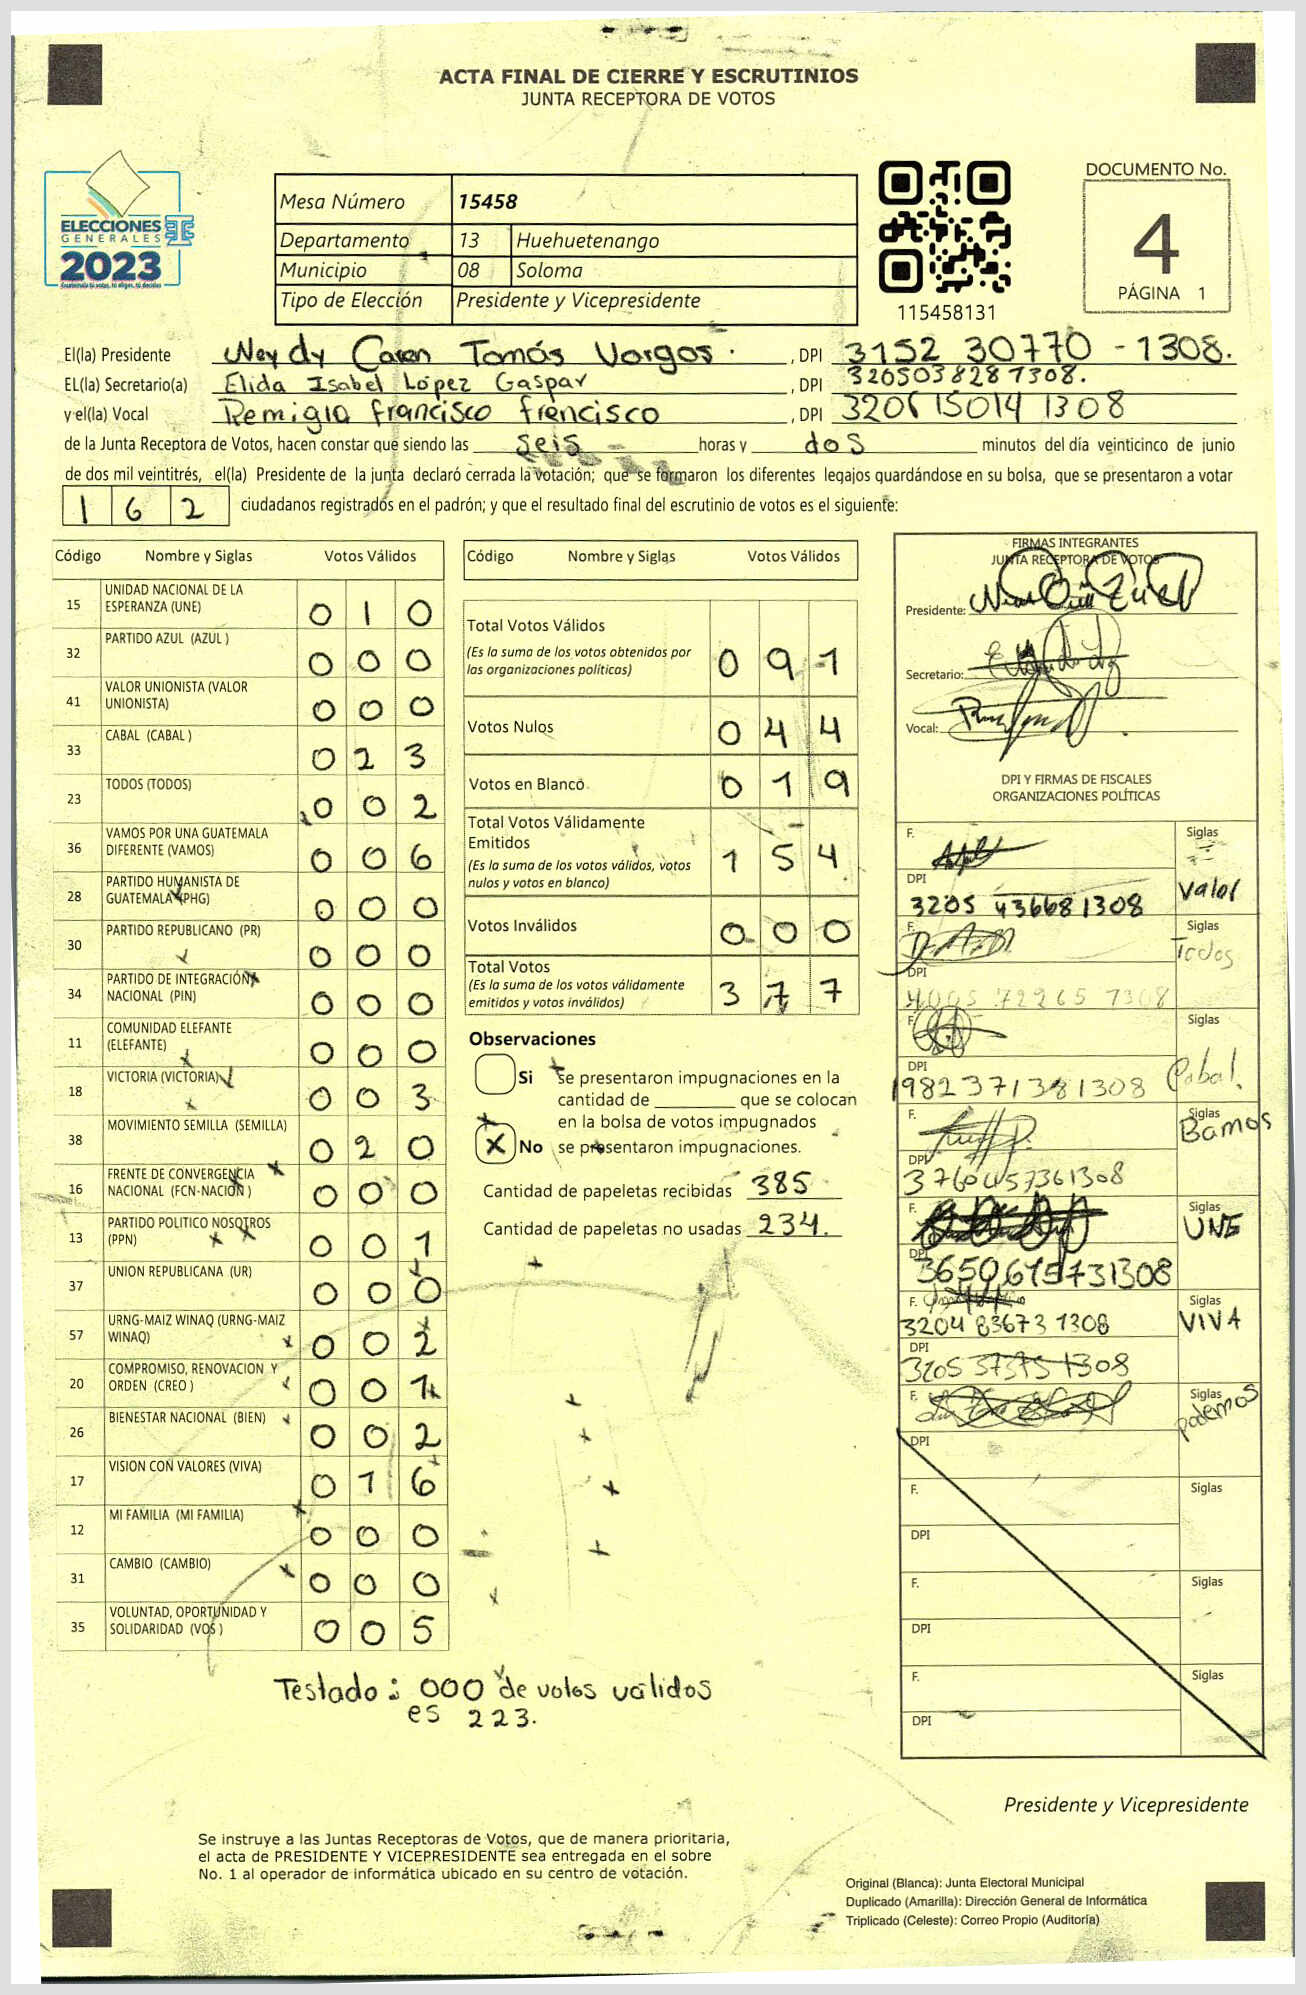 ACTA FINAL DE CIERRE Y ESCRUTINIOS
JUNTA RECEPTORA DE VOTOS
ELECCIONES
GENERALES
2023
Mesa Número 15458
Departamento 13 Huehuetenango
Municipio 08 Soloma
Tipo de Elección Presidente y Vicepresidente
115458131
DOCUMENTO No.
4
PÁGINA 1
El(la) Presidente Neydy Caren Tomás Vargas. , DPI 3152 30770 - 1308.
EL(la) Secretario(a) Elida Isabel López Gaspar , DPI 320503828 1308.
y el(la) Vocal Remigio francisco francisco , DPI 320615014 1308
de la Junta Receptora de Votos, hacen constar que siendo las seis horas y dos minutos del día veinticinco de junio
de dos mil veintitrés, el(la) Presidente de la junta declaró cerrada la votación; que se formaron los diferentes legajos guardándose en su bolsa, que se presentaron a votar
162 ciudadanos registrados en el padrón; y que el resultado final del escrutinio de votos es el siguiente:
Código Nombre y Siglas Votos Válidos
15 UNIDAD NACIONAL DE LA
ESPERANZA (UNE) 0 1 0
32 PARTIDO AZUL (AZUL ) 0 0 0
41 VALOR UNIONISTA (VALOR
UNIONISTA) 0 0 0
33 CABAL (CABAL ) 0 2 3
23 TODOS (TODOS) 0 0 2
36 VAMOS POR UNA GUATEMALA
DIFERENTE (VAMOS) 0 0 6
28 PARTIDO HUMANISTA DE
GUATEMALA (PHG) 0 0 0
30 PARTIDO REPUBLICANO (PR) 0 0 0
34 PARTIDO DE INTEGRACIÓN
NACIONAL (PIN) 0 0 0
11 COMUNIDAD ELEFANTE
(ELEFANTE) 0 0 0
18 VICTORIA (VICTORIA) 0 0 3
38 MOVIMIENTO SEMILLA (SEMILLA) 0 2 0
16 FRENTE DE CONVERGENCIA
NACIONAL (FCN-NACION ) 0 0 0
13 PARTIDO POLITICO NOSOTROS
(PPN) 0 0 1
37 UNION REPUBLICANA (UR) 0 0 0
57 URNG-MAIZ WINAQ (URNG-MAIZ
WINAQ) 0 0 2
20 COMPROMISO, RENOVACION Y
ORDEN (CREO ) 0 0 1
26 BIENESTAR NACIONAL (BIEN) 0 0 2
17 VISION CON VALORES (VIVA) 0 1 6
12 MI FAMILIA (MI FAMILIA) 0 0 0
31 CAMBIO (CAMBIO) 0 0 0
35 VOLUNTAD, OPORTUNIDAD Y
SOLIDARIDAD (VOS ) 0 0 5
Código Nombre y Siglas Votos Válidos
Total Votos Válidos
(Es la suma de los votos obtenidos por
las organizaciones políticas) 0 9 1
Votos Nulos 0 4 4
Votos en Blanco 0 1 9
Total Votos Válidamente
Emitidos
(Es la suma de los votos válidos, votos
nulos y votos en blanco) 1 5 4
Votos Inválidos 0 0 0
Total Votos
(Es la suma de los votos válidamente
emitidos y votos inválidos) 3 7 7
Observaciones
Si se presentaron impugnaciones en la
cantidad de ________ que se colocan
en la bolsa de votos impugnados
X No se presentaron impugnaciones.
Cantidad de papeletas recibidas 385
Cantidad de papeletas no usadas 234.
Testado: 000 de votos válidos
es 223.
FIRMAS INTEGRANTES
JUNTA RECEPTORA DE VOTOS
Presidente:
Secretario:
Vocal:
DPI Y FIRMAS DE FISCALES
ORGANIZACIONES POLÍTICAS
F. Siglas
DPI Valor
3205 436681308
F. Siglas
DPI Todos
4005 72265 1308
F. Siglas
DPI Cabal.
1982371381308
F. Siglas
DPI Bamos
3760457361308
F. Siglas
DPI UNE
3650615731308
F. Siglas
3204 83673 1308 VIVA
DPI
3205 37375 1308
F. Siglas
DPI podemos
F. Siglas
DPI
F. Siglas
DPI
F. Siglas
DPI
Presidente y Vicepresidente
Se instruye a las Juntas Receptoras de Votos, que de manera prioritaria,
el acta de PRESIDENTE Y VICEPRESIDENTE sea entregada en el sobre
No. 1 al operador de informática ubicado en su centro de votación.
Original (Blanca): Junta Electoral Municipal
Duplicado (Amarilla): Dirección General de Informática
Triplicado (Celeste): Correo Propio (Auditoría)